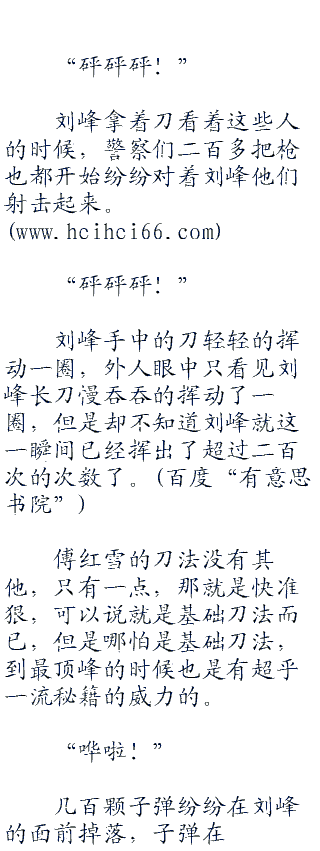 “砰砰砰！”
刘峰拿着刀看着这些人
的时候，警察们二百多把枪
也都开始纷纷对着刘峰他们
射击起来。
(www.hcihci66.com)
“砰砰砰！”
刘峰手中的刀轻轻的挥
动一圈，外人眼中只看见刘
峰长刀慢吞吞的挥动了一
圈，但是却不知道刘峰就这
一瞬间已经挥出了超过二百
次的次数了。(百度“有意思
书院”)
傅红雪的刀法没有其
他，只有一点，那就是快准
狠，可以说就是基础刀法而
已，但是哪怕是基础刀法，
到最顶峰的时候也是有超乎
一流秘籍的威力的。
“哗啦！”
几百颗子弹纷纷在刘峰
的面前掉落，子弹在